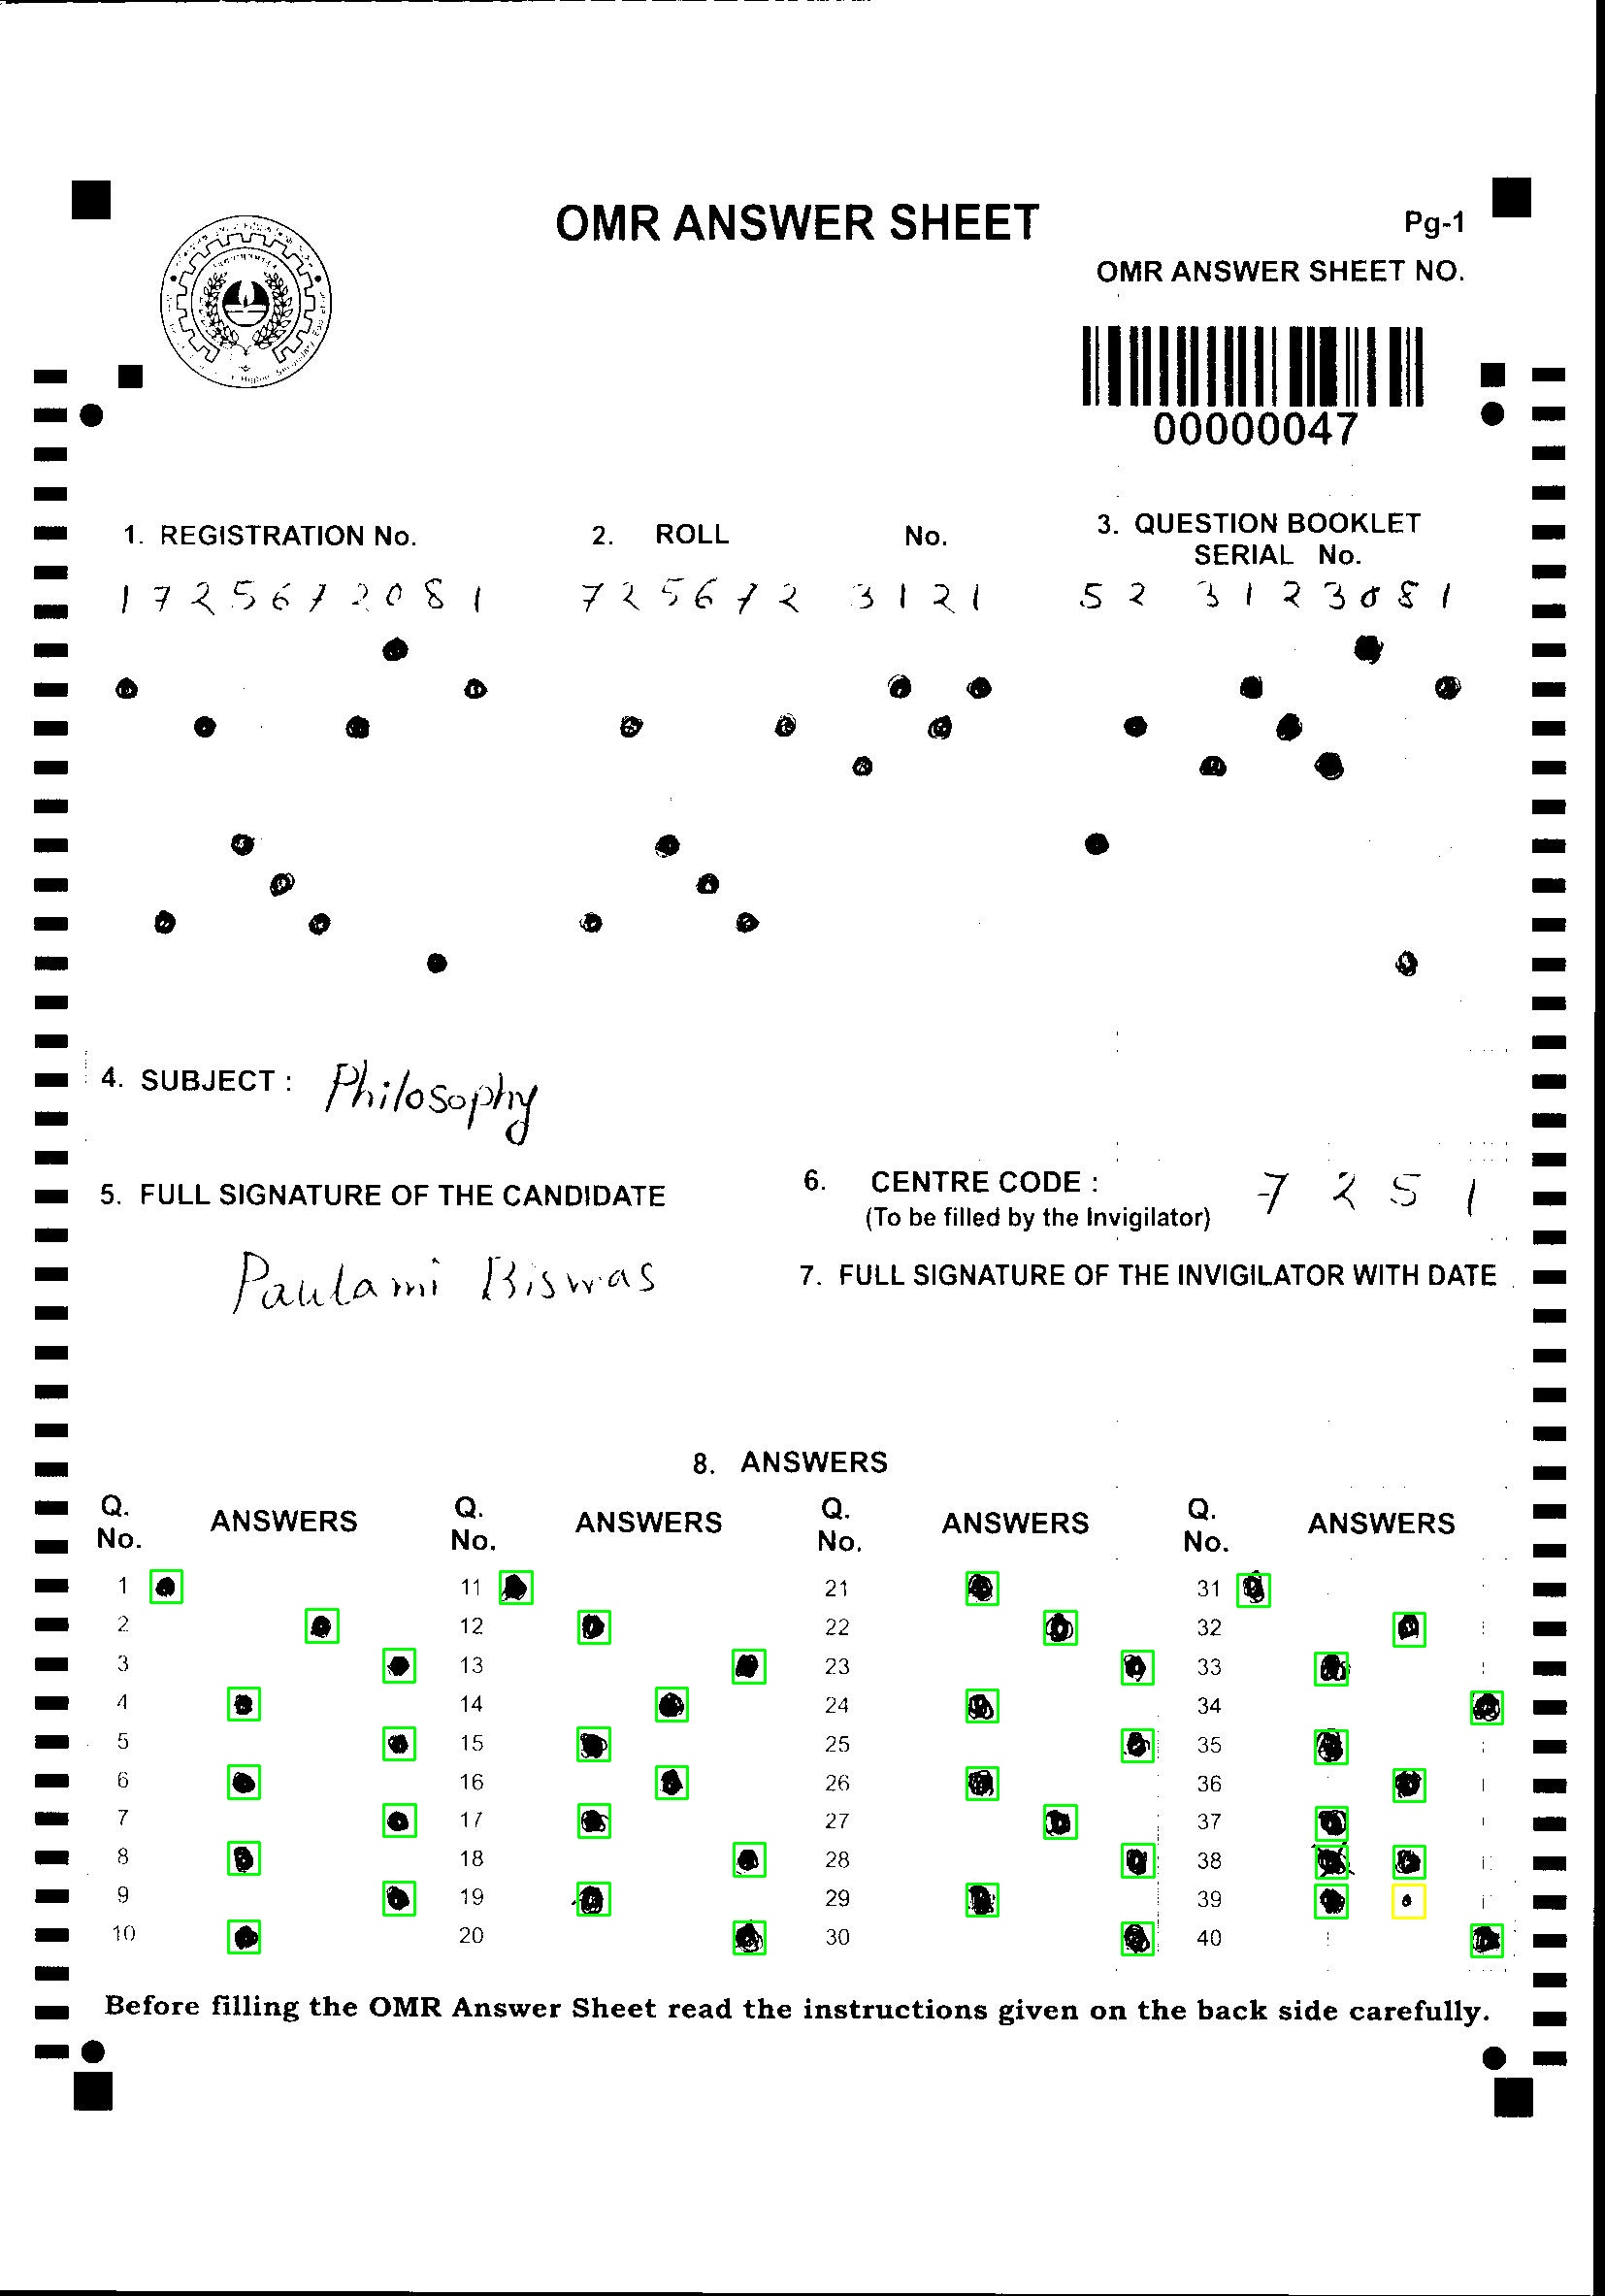 OMR ANSWER SHEET
Pg-1
OMR ANSWER SHEET NO.
00000047
1. REGISTRATION No.
1725672081
2. ROLL No.
725672 3121
3. QUESTION BOOKLET
SERIAL No.
52 3123081
4. SUBJECT : Philosophy
5. FULL SIGNATURE OF THE CANDIDATE
Paulami Biswas
6. CENTRE CODE : 7251
(To be filled by the Invigilator)
7. FULL SIGNATURE OF THE INVIGILATOR WITH DATE
8. ANSWERS
Q. No. ANSWERS Q. No. ANSWERS Q. No. ANSWERS Q. No. ANSWERS
1 11 21 31
2 12 22 32
3 13 23 33
4 14 24 34
5 15 25 35
6 16 26 36
7 17 27 37
8 18 28 38
9 19 29 39
10 20 30 40
Before filling the OMR Answer Sheet read the instructions given on the back side carefully.